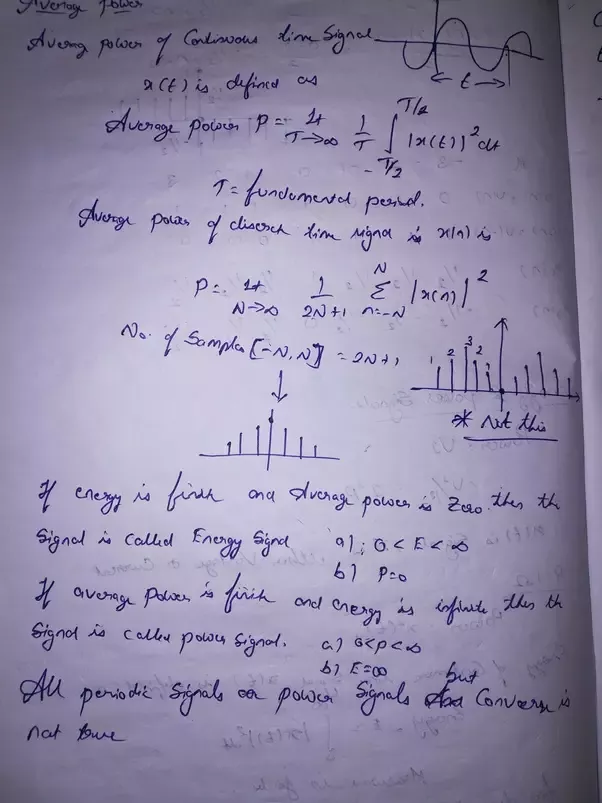 Average power
Average power of Continuous time Signal
t
x(t) is defined as
Average power P = Lt T→∞ 1/T ∫ T/2 -T/2 |x(t)|² dt
T = fundamental period.
Average power of discrete time signal is x(n) is
P = Lt N→∞ 1/2N+1 N Σ n=-N |x(n)|²
No. of Samples [-N, N] = 2N+1
1 2 3 2
* Not this
If energy is finite and Average power is Zero then the
Signal is called Energy Signal a) 0 < E < ∞
b) P=0
If average power is finite and energy is infinite then the
Signal is called power signal. a) 0<P<∞
b) E=∞
but
All periodic Signals are power Signals Converse is
not true